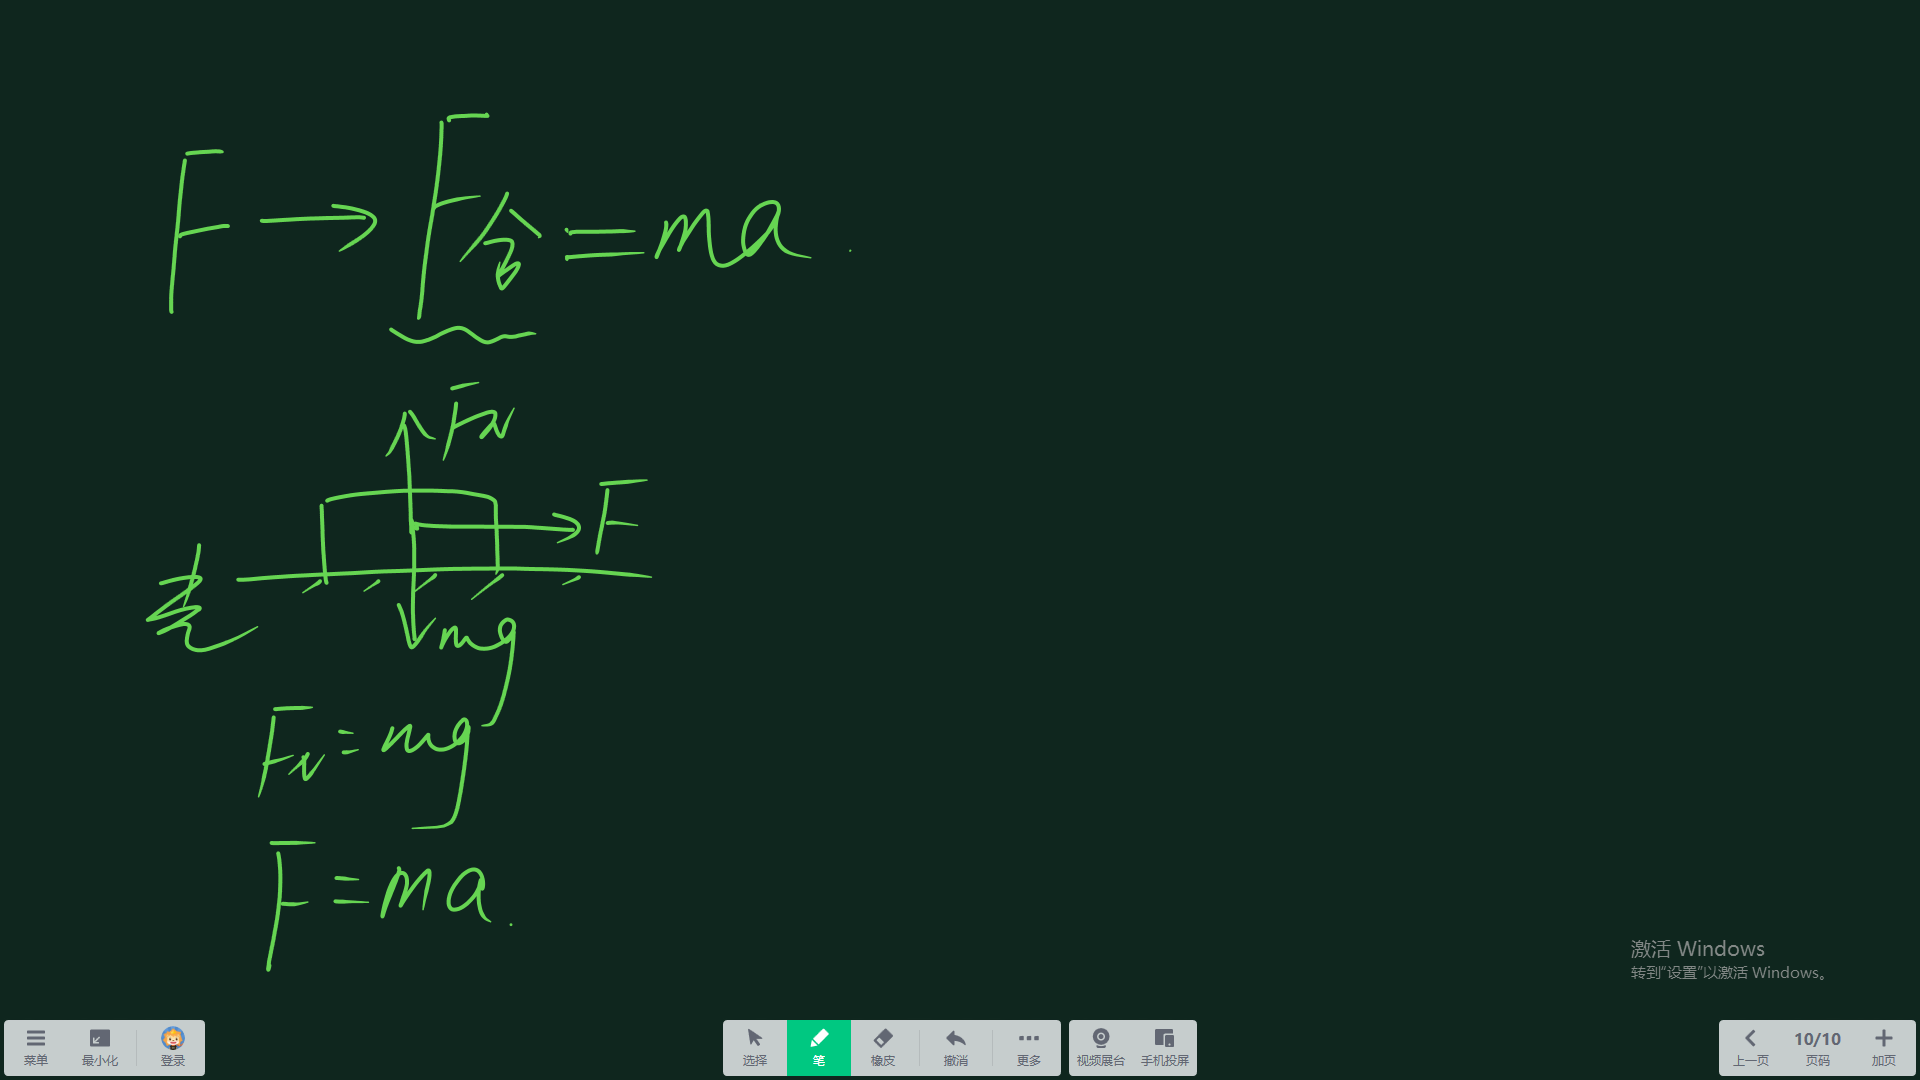 F → F合 = ma.
F_N
F
光
mg
F_N = mg
F = ma.
激活 Windows
转到“设置”以激活 Windows。
菜单 最小化 登录 选择 笔 橡皮 撤消 更多 视频展台 手机投屏 上一页 10/10 页码 加页